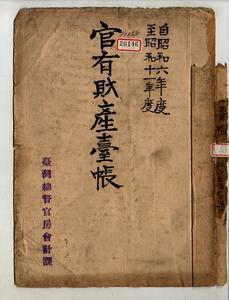 自昭和六年度
至昭和十一年度
20146
官有財產臺帳
臺灣總督官房會計課